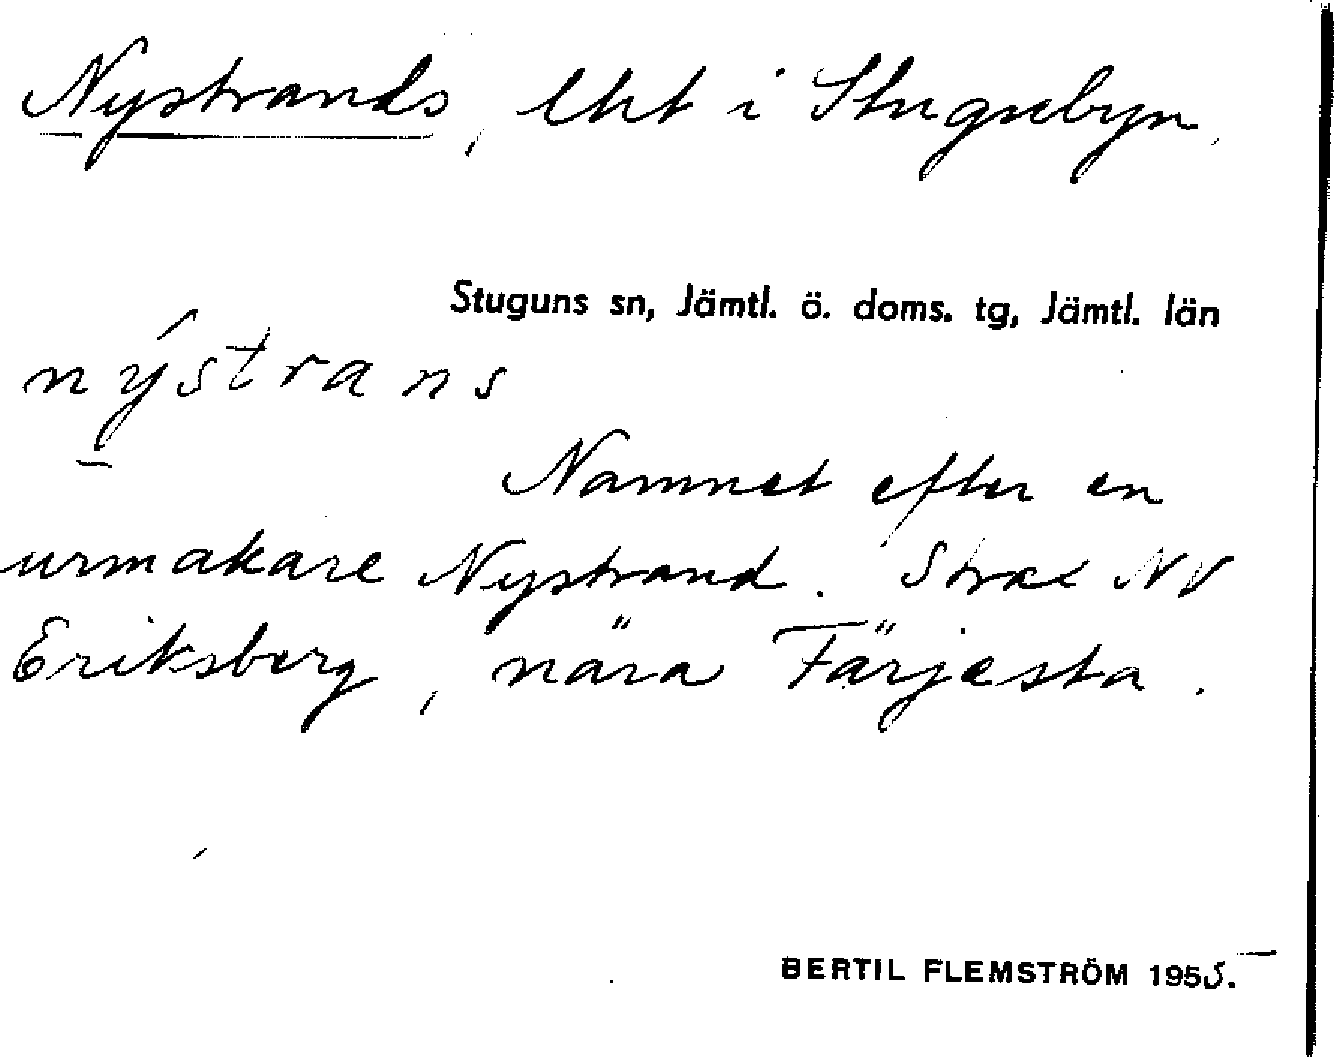 Nystrands, lht i Stugubyn.
Stuguns sn, Jämtl. ö. doms. tg, Jämtl. län
nýstrans
Namnet efter en
urmakare Nystrand. Strax NV
Eriksberg, nära Färjesta.
BERTIL FLEMSTRÖM 1955.